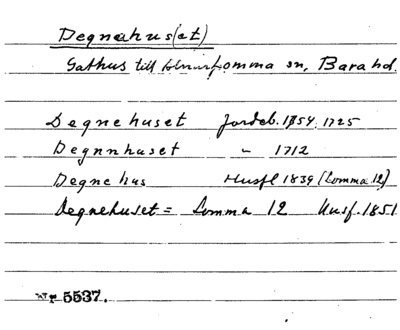 Degnehus(et)
Gathus till Lomma sn, Bara hd.
Degnehuset Jordeb. 1754. 1725
Degnnhuset " 1712
Degne hus Husfl 1839 (Lomma 12)
Degnehuset = Lomma 12 Husf. 1851
Nr 5537.